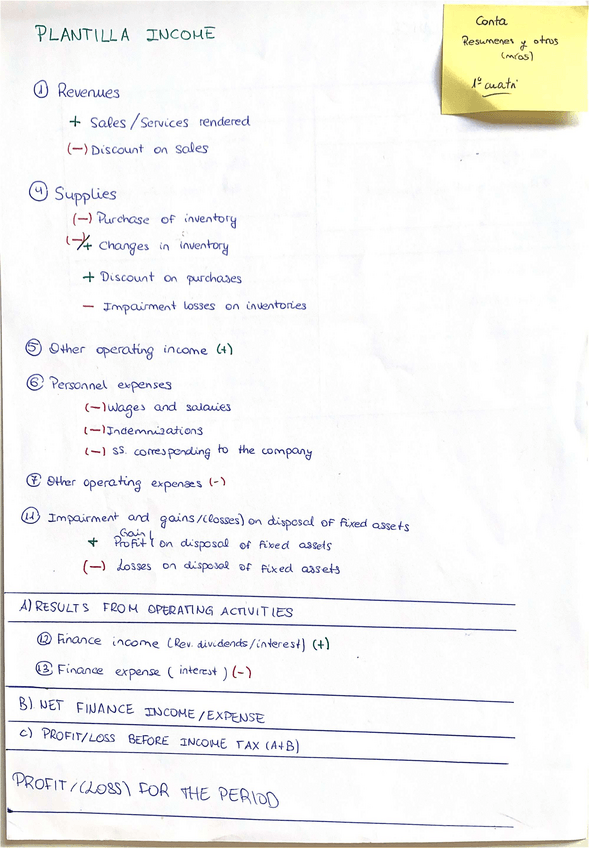 PLANTILLA INCOME
Conta
Resumenes y otros
(mios)
1º cuatri
① Revenues
+ Sales/Services rendered
(-) Discount on sales
④ Supplies
(-) Purchase of inventory
(-)/+ Changes in inventory
+ Discount on purchases
- Impairment losses on inventories
⑤ Other operating income (+)
⑥ Personnel expenses
(-) Wages and salaries
(-) Indemnizations
(-) SS. corresponding to the company
⑦ Other operating expenses (-)
⑪ Impairment and gains/(losses) on disposal of fixed assets
Gain/
+ Profit on disposal of fixed assets
(-) Losses on disposal of fixed assets
A) RESULTS FROM OPERATING ACTIVITIES
⑫ Finance income (Rev. dividends/interest) (+)
⑬ Finance expense (interest) (-)
B) NET FINANCE INCOME/EXPENSE
C) PROFIT/LOSS BEFORE INCOME TAX (A+B)
PROFIT/(LOSS) FOR THE PERIOD